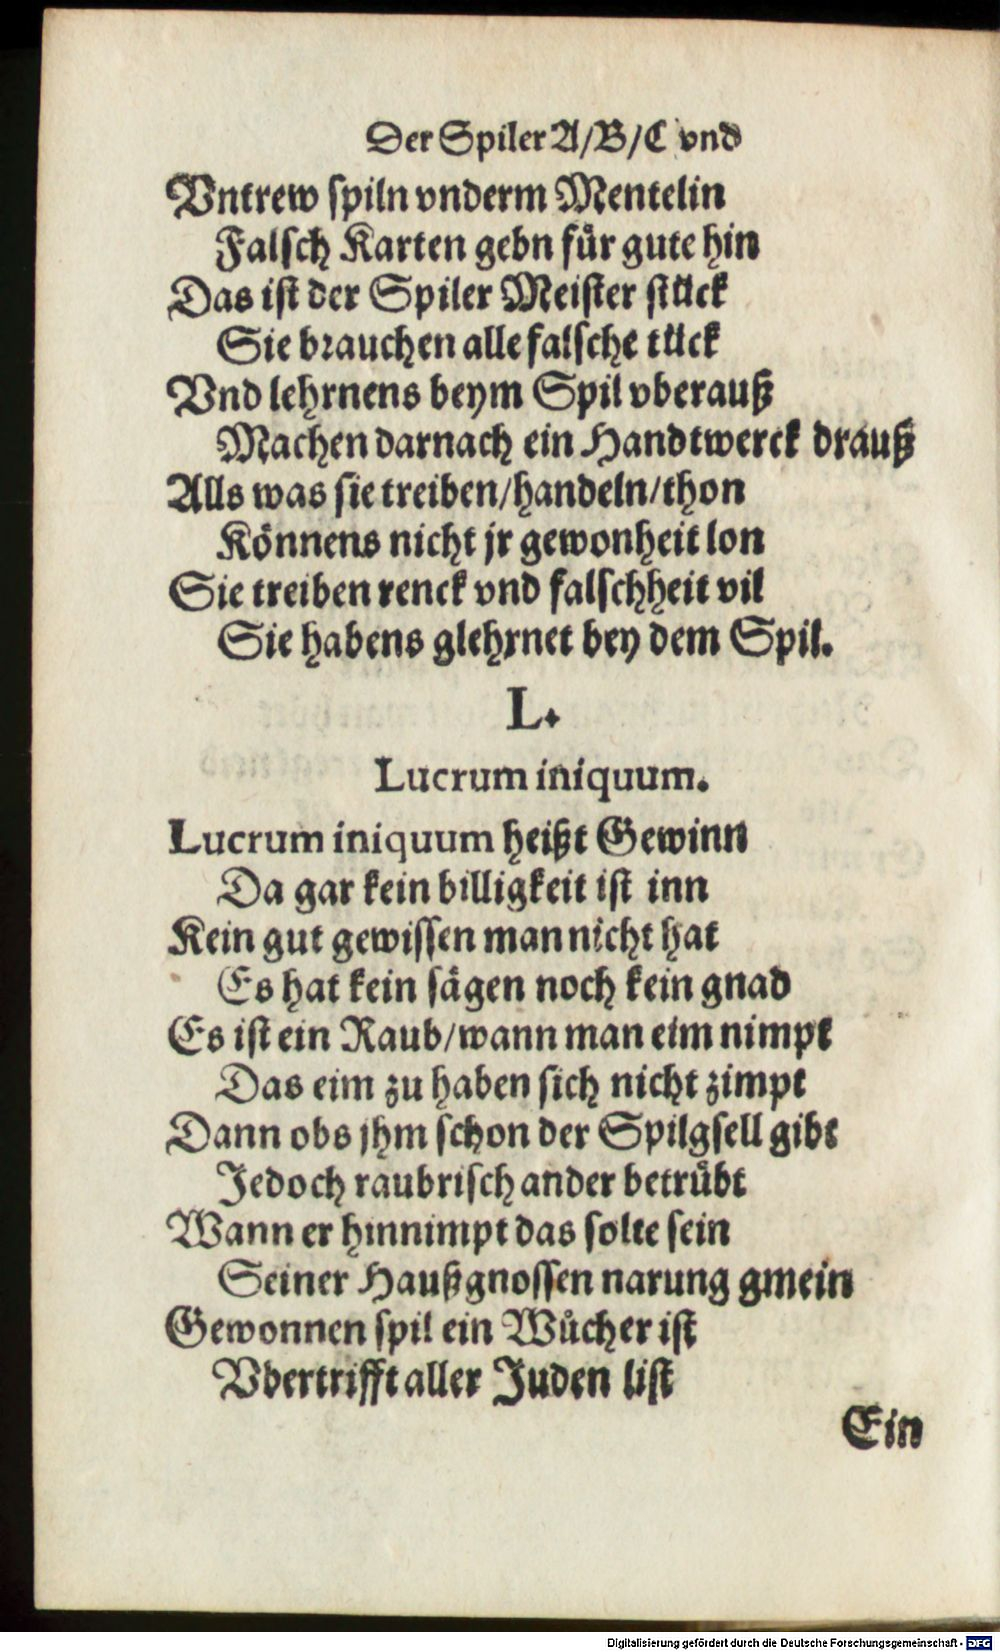 Der Spiler A/B/C vnd
Vntrew spiln vnderm Mentelin
Falsch Karten gebn für gute hin
Das ist der Spiler Meister stück
Sie brauchen alle falsche tück
Vnd lehrnens beym Spil vberauß
Machen darnach ein Handtwerck drauß
Alls was sie treiben/handeln/thon
Können​s nicht jr gewonheit lon
Sie treiben renck vnd falschheit vil
Sie habens glehrnet bey dem Spil.
L.
Lucrum iniquum.
Lucrum iniquum heißt Gewinn
Da gar kein billigkeit ist inn
Kein gut gewissen man nicht hat
Es hat kein sägen noch kein gnad
Es ist ein Raub/wann man eim nimpt
Das eim zu haben sich nicht zimpt
Dann obs jhm schon der Spilgsell gibt
Jedoch raubrisch ander betrübt
Wann er hinnimpt das solte sein
Seiner Haußgnossen narung gmein
Gewonnen spil ein Wůcher ist
Vbertrifft aller Juden list
Ein
Digitalisierung gefördert durch die Deutsche Forschungsgemeinschaft - DFG